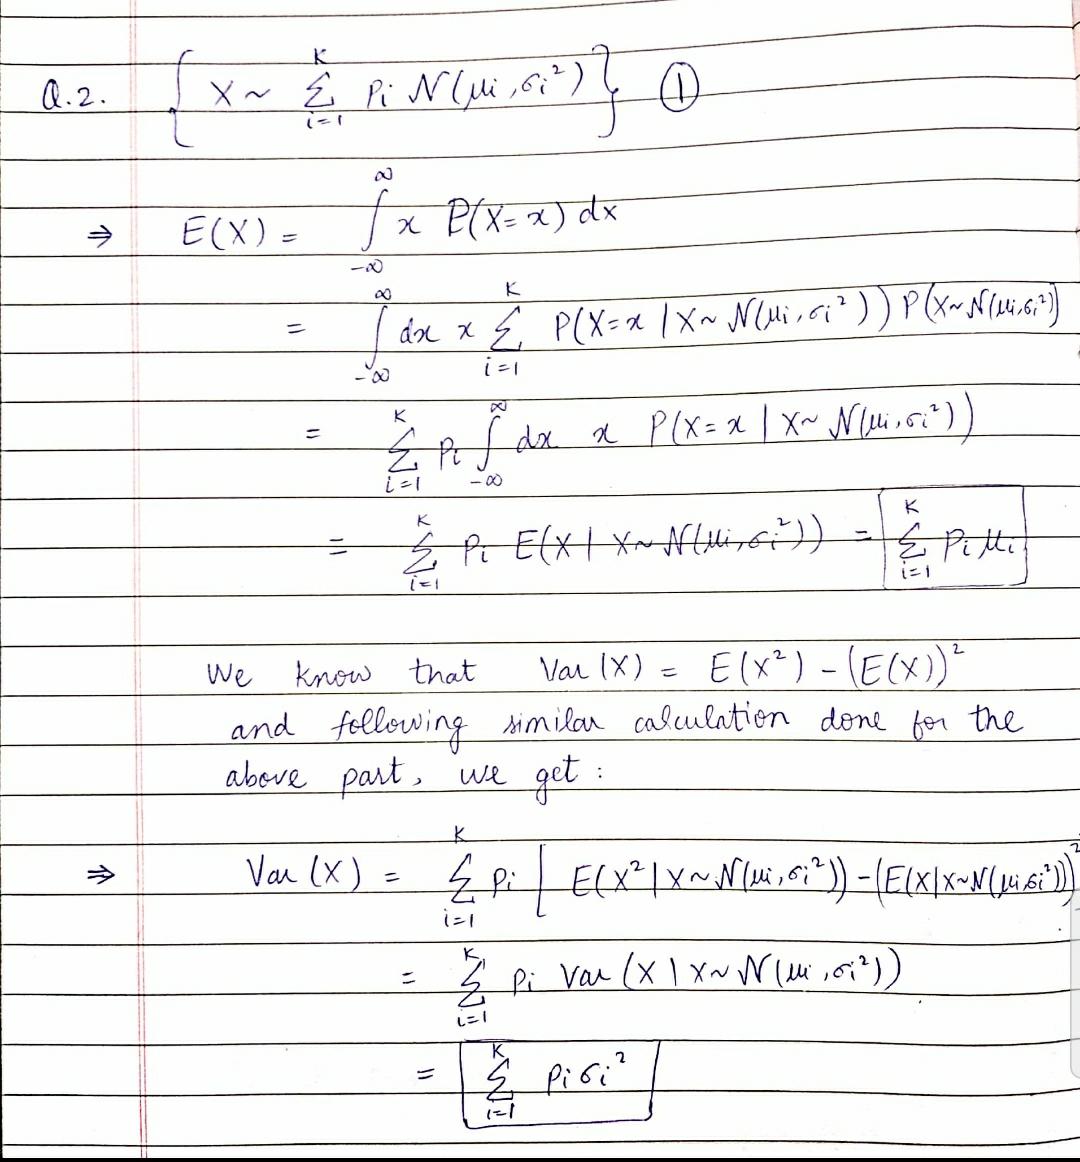 Q.2. { X ~ Σ_{i=1}^{K} Pi N(μi, σi²) } ①
⇒ E(X) = ∫_{-∞}^{∞} x P(X=x) dx
= ∫_{-∞}^{∞} dx x Σ_{i=1}^{K} P(X=x | X~ N(μi, σi²)) P(X~N(μi, σi²))
= Σ_{i=1}^{K} Pi ∫_{-∞}^{∞} dx x P(X=x | X~ N(μi, σi²))
= Σ_{i=1}^{K} Pi E(X | X~ N(μi, σi²)) = Σ_{i=1}^{K} Pi μi
We know that Var (X) = E(X²) - (E(X))²
and following similar calculation done for the
above part, we get :
⇒ Var (X) = Σ_{i=1}^{K} Pi [ E(X² | X~N(μi, σi²)) - (E(X|X~N(μi, σi²)))²
= Σ_{i=1}^{K} Pi Var (X | X~ N(μi, σi²))
= Σ_{i=1}^{K} Pi σi²